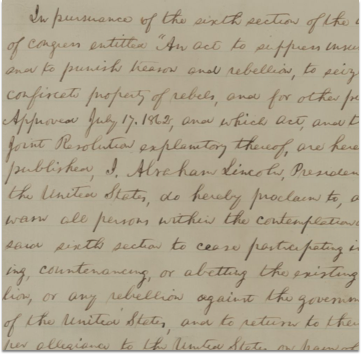 In pursuance of the sixth section of the a
of congress entitled "An act to suppress insu
and to punish treason and rebellion, to seiz
confiscate property of rebels, and for other pu
Approved July 17. 1862, and which act, and t
Joint Resolution explanatory thereof, are here
published, I, Abraham Lincoln, Presiden
the United States, do hereby proclaim to, a
warn all persons within the contemplation
said sixth section to cease participating in
ing, countenancing, or abetting the existing
lion, or any rebellion against the governm
of the United States, and to return to thei
per allegiance to the United States, on pain of